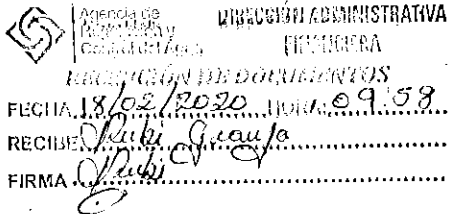 Agencia de
Regulación y
Control del Agua
DIRECCIÓN ADMINISTRATIVA
FINANCIERA
RECEPCIÓN DE DOCUMENTOS
FECHA 18/02/2020 HORA 09:58
RECIBE Rubi Granja
FIRMA Rubi